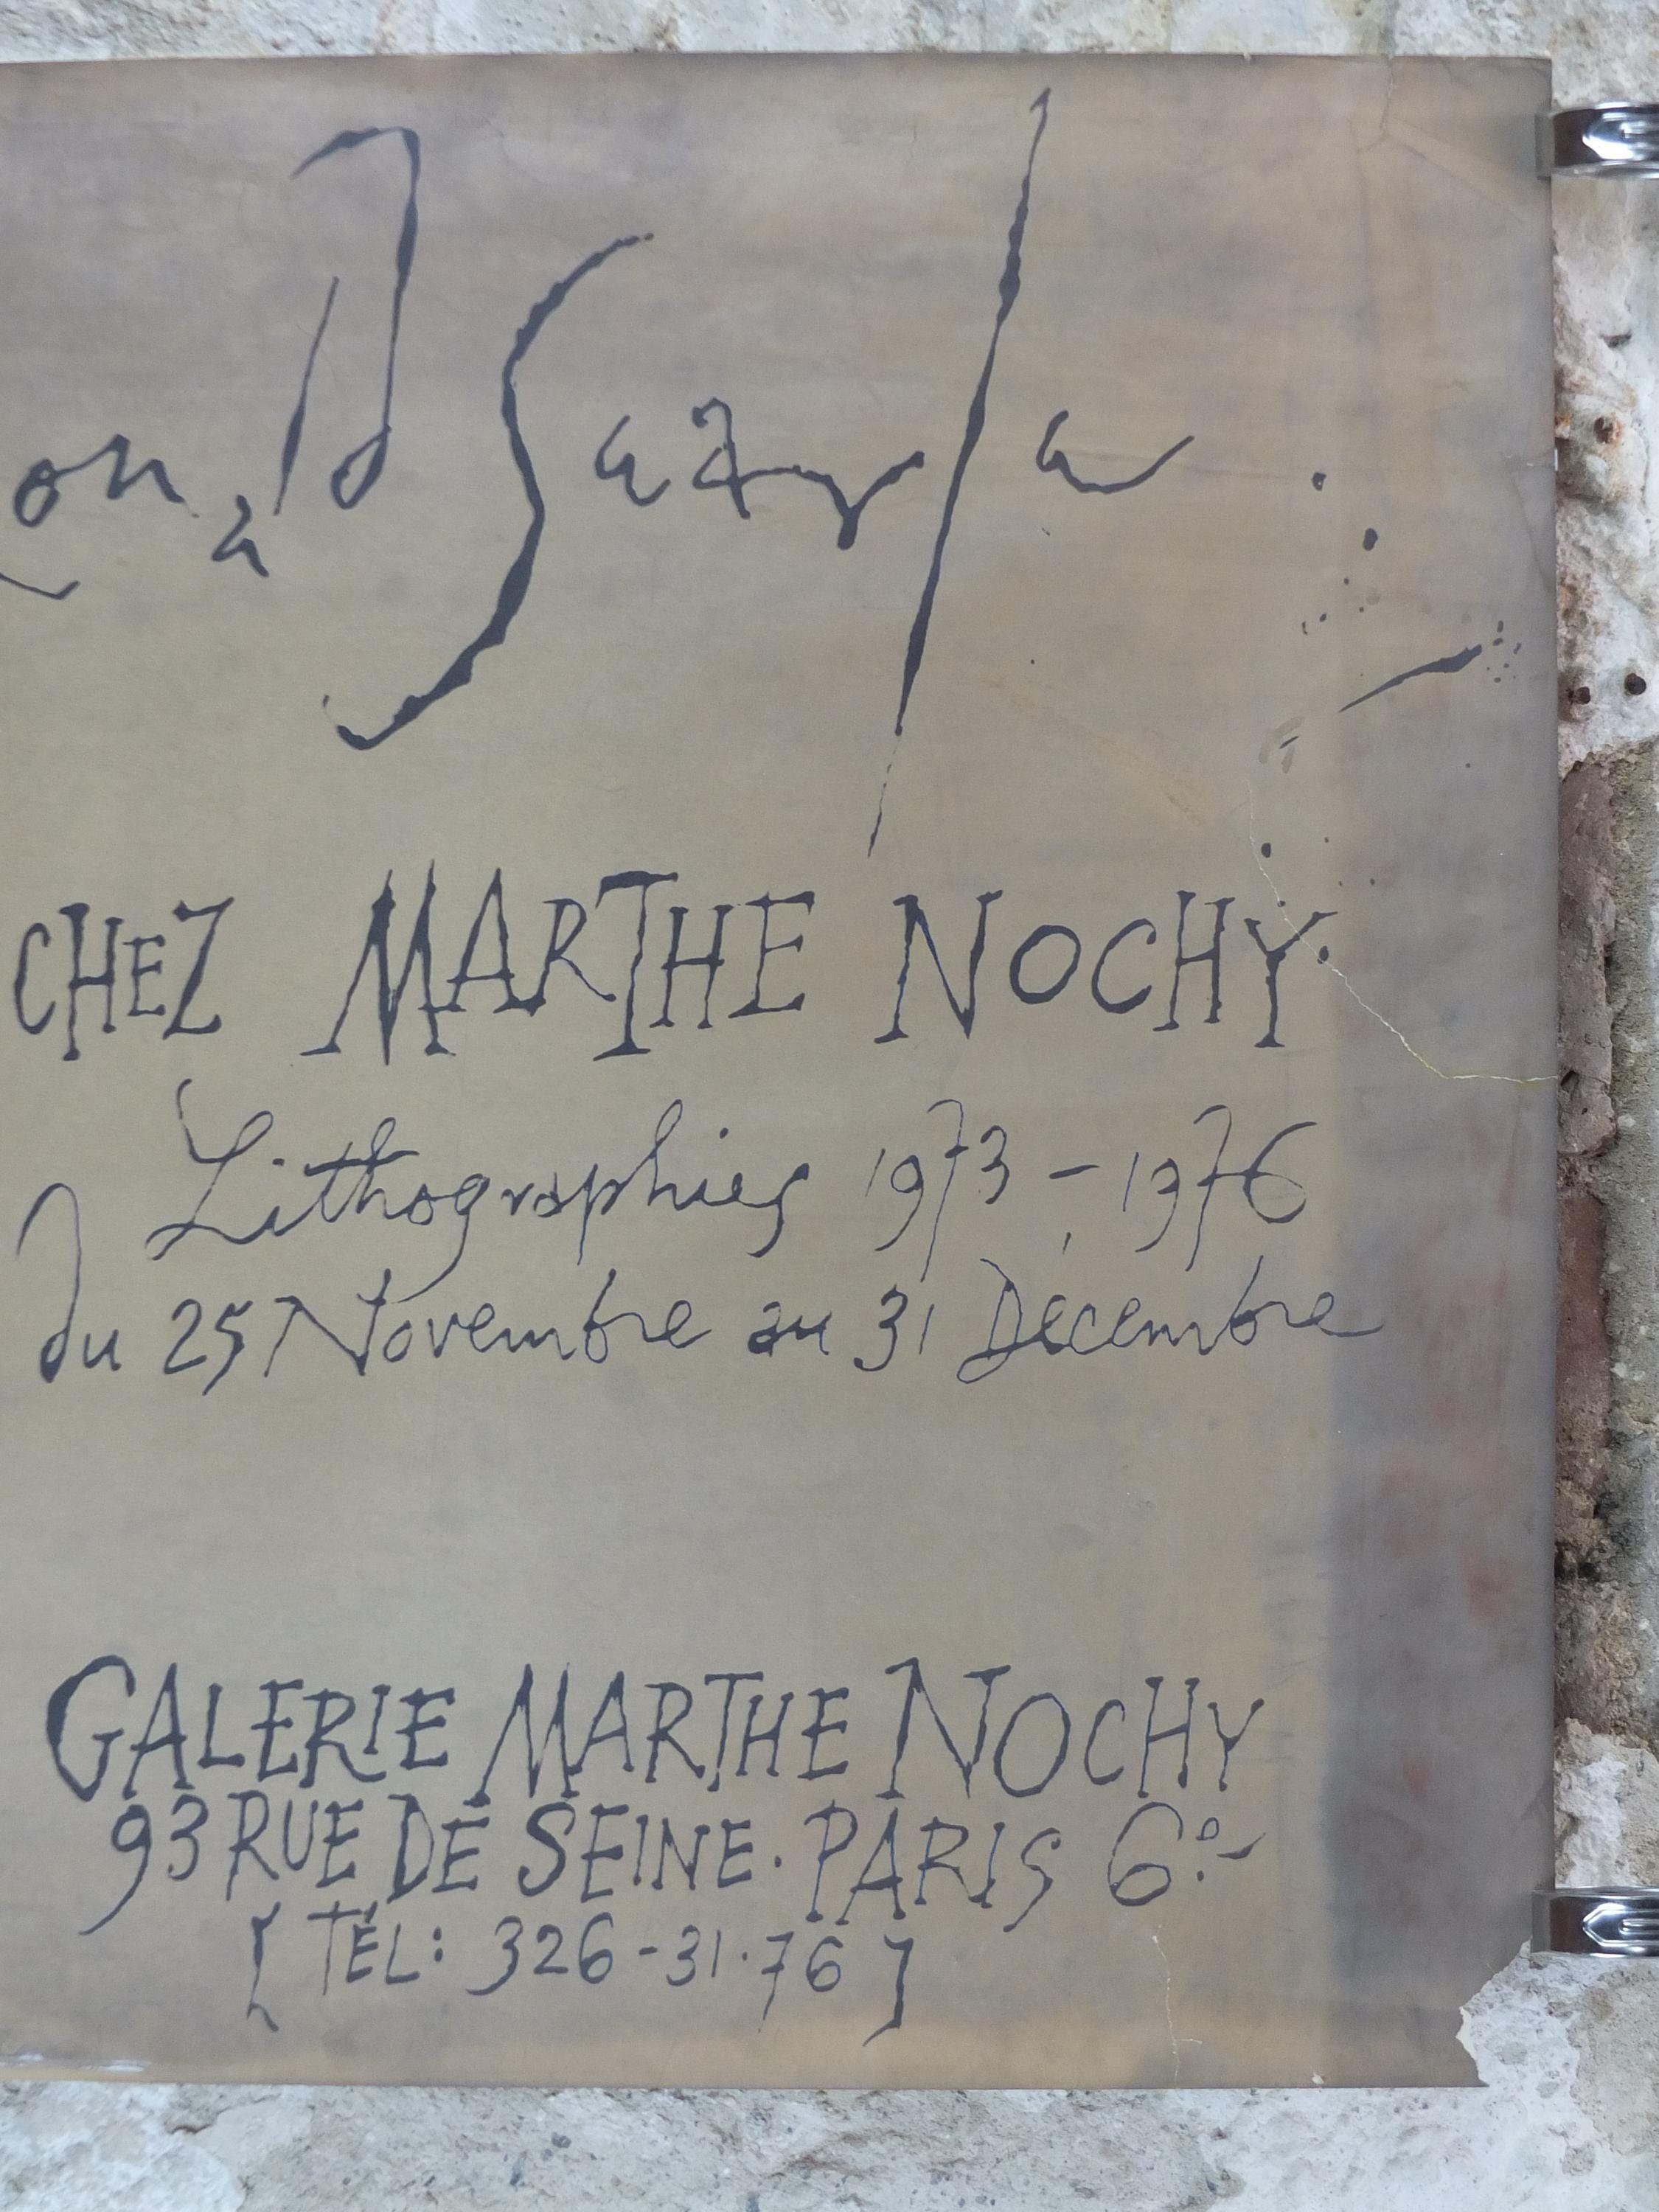 onald Searle
CHEZ MARTHE NOCHY.
Lithographies 1973-1976
du 25 Novembre au 31 Décembre
GALERIE MARTHE NOCHY
93 RUE DE SEINE. PARIS 6e
[ TÉL: 326-31.76 ]